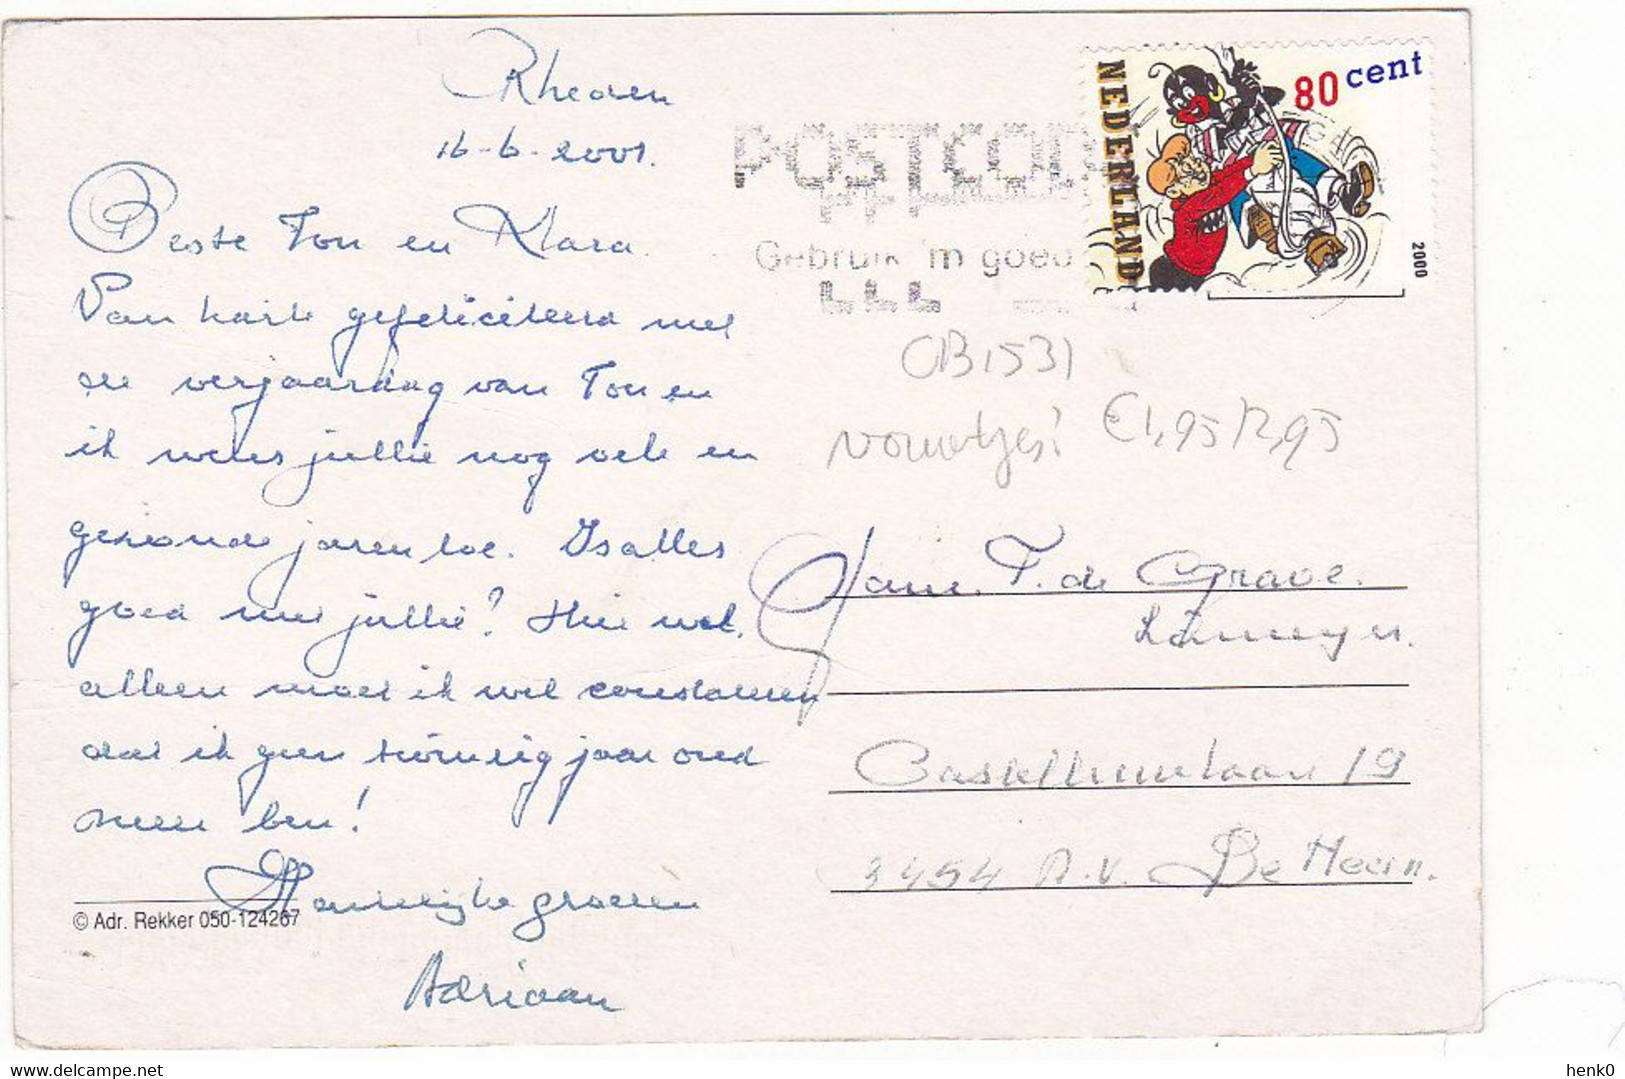 Rheden
16-6-2001.
Beste Ton en Klara.
Van harte gefeliciteerd met
de verjaardag van Ton en
ik wens jullie nog vele en
gezonde jaren toe. Is alles
goed met jullie? Hier wel,
alleen moet ik wel constateren
dat ik geen twintig jaar oud
meer ben!
Hartelijke groeten
Adriaan
© Adr. Rekker 050-124267
POSTCOD
Gebruik 'm goed
NEDERLAND
80 cent
2000
OB1531
€1,95/2,95
Fam. T. de Grave.
19
3454 A.V. De Meern.
delcampe.net
henk0